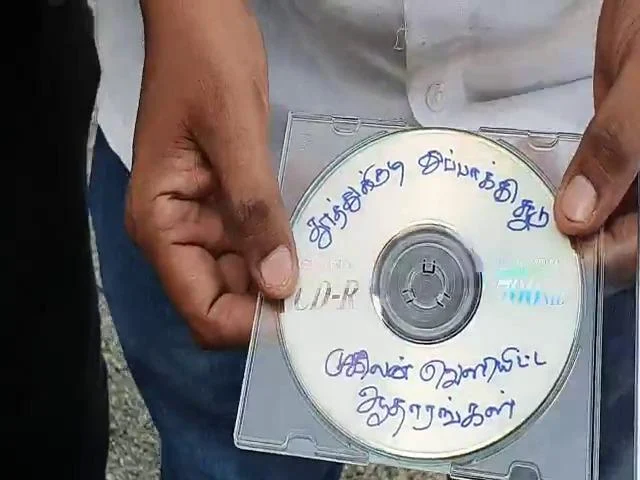 தூத்துக்குடி துப்பாக்கி சூடு
CD-R
700MB
முகிலன் வெளியிட்ட
ஆதாரங்கள்